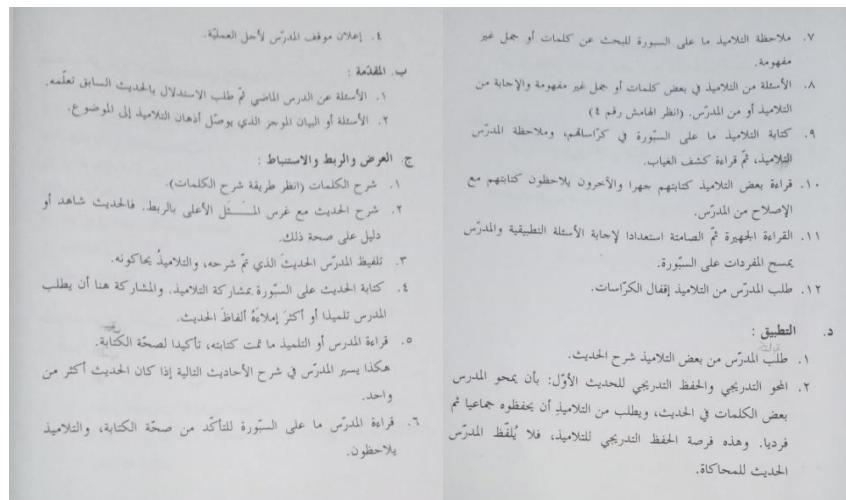 ٤. إعلان موقف المدرّس لأجل العمليّة.
ب. المقدّمة :
١. الأسئلة عن الدرس الماضي ثمّ طلب الاستدلال بالحديث السابق تعلّمه.
٢. الأسئلة أو البيان الموجز الذي يوصّل أذهان التلاميذ إلى الموضوع.
ج. العرض والربط والاستنباط :
١. شرح الكلمات (انظر طريقة شرح الكلمات).
٢. شرح الحديث مع غرس المَــثَل الأعلى بالربط. فالحديث شاهد أو
دليل على صحة ذلك.
٣. تلفيظ المدرّس الحديثَ الذي تمّ شرحه، والتلاميذُ يحاكونه.
٤. كتابة الحديث على السبّورة بمشاركة التلاميذ. والمشاركة هنا أن يطلب
المدرس تلميذا أو أكثرَ إملاءَهُ ألفاظَ الحديث.
٥. قراءة المدرس أو التلميذ ما تمت كتابته، تأكيدا لصحة الكتابة.
هكذا يسير المدرّس في شرح الأحاديث التالية إذا كان الحديث أكثر من
واحد.
٦. قراءة المدرّس ما على السبّورة للتأكّد من صحّة الكتابة، والتلاميذ
يلاحظون.
٧. ملاحظة التلاميذ ما على السبورة للبحث عن كلمات أو جمل غير
مفهومة.
٨. الأسئلة من التلاميذ في بعض كلمات أو جمل غير مفهومة والإجابة من
التلاميذ أو من المدرّس. (انظر الهامش رقم ٤)
٩. كتابة التلاميذ ما على السبّورة في كرّاساتهم، وملاحظة المدرّس
التلاميذ، ثمّ قراءة كشف الغياب.
١٠. قراءة بعض التلاميذ كتابتهم جهرا والآخرون يلاحظون كتابتهم مع
الإصلاح من المدرّس.
١١. القراءة الجهيرة ثمّ الصامتة استعدادا لإجابة الأسئلة التطبيقية والمدرّس
يمسح المفردات على السبّورة.
١٢. طلب المدرّس من التلاميذ إقفال الكرّاسات.
د. التطبيق :
١. طلب المدرّس من بعض التلاميذ شرح الحديث.
٢. المحو التدريجي والحفظ التدريجي للحديث الأوّل: بأن يمحو المدرس
بعض الكلمات في الحديث، ويطلب من التلاميذ أن يحفظوه جماعيا ثم
فرديا. وهذه فرصة الحفظ التدريجي للتلاميذ، فلا يُلفّظ المدرّس
الحديث للمحاكاة.